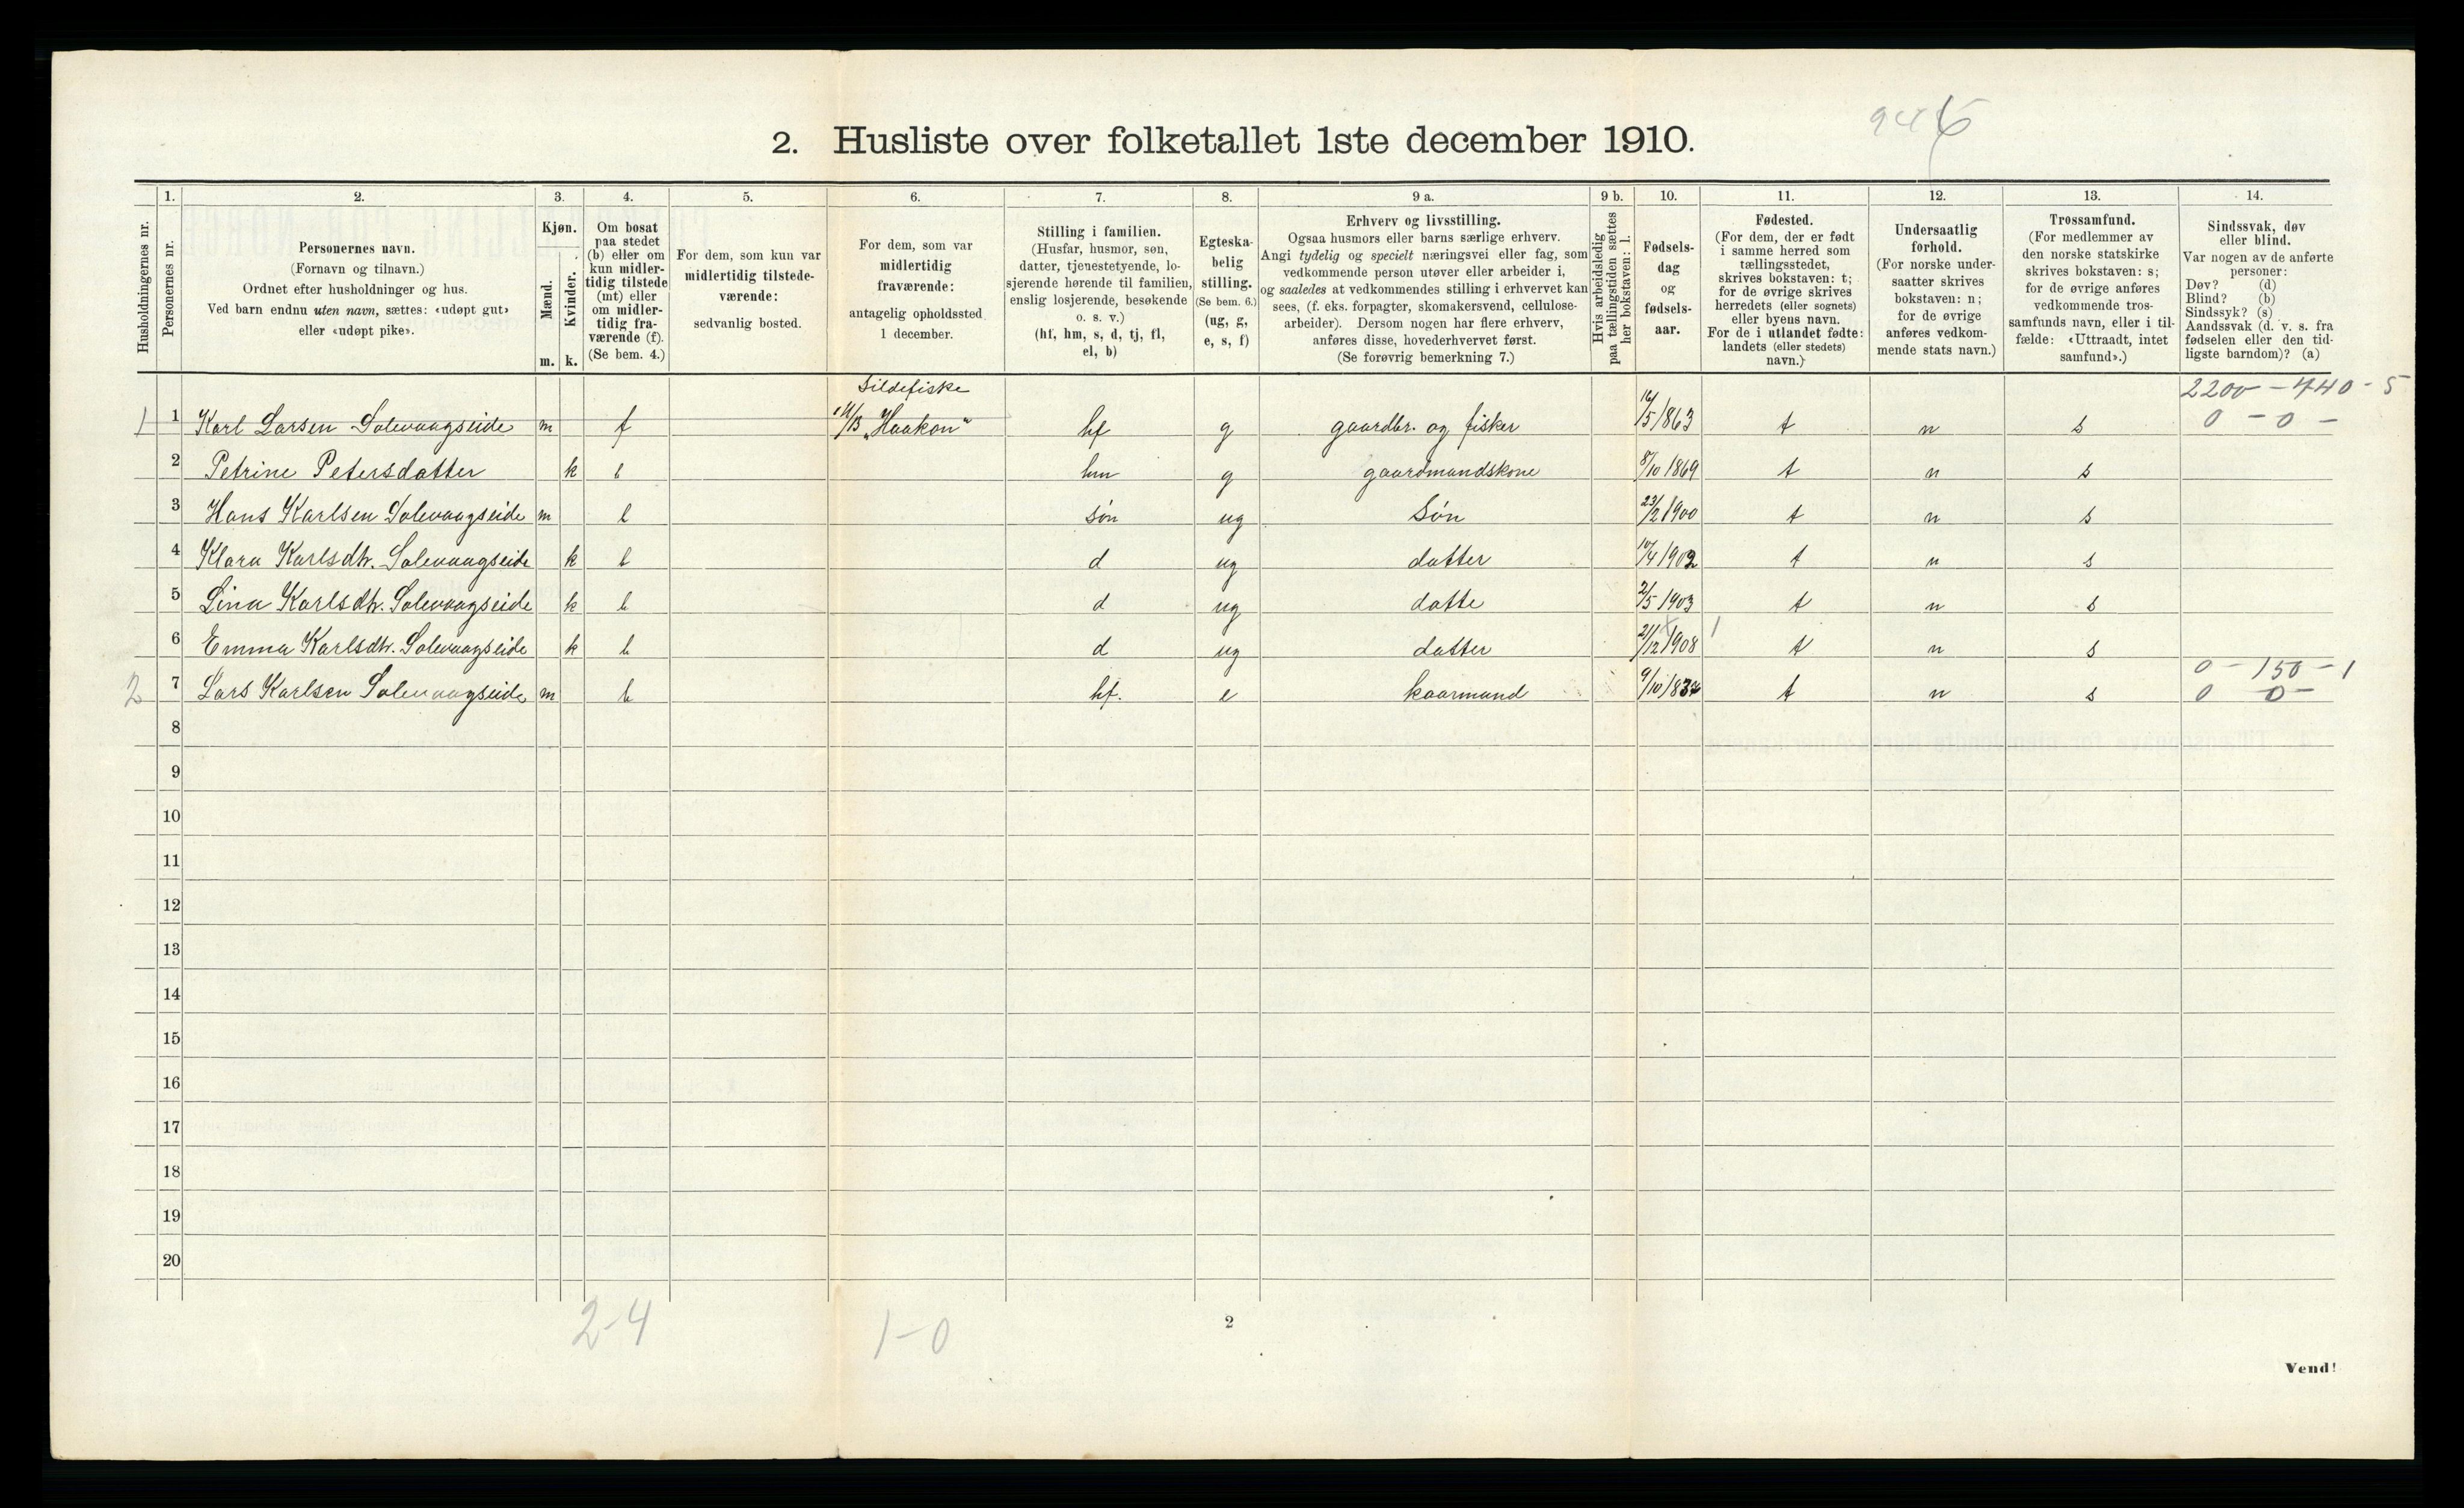 946
2. Husliste over folketallet 1ste december 1910.
Husholdningernes nr.
1. Personernes nr.
2. Personernes navn.
(Fornavn og tilnavn.)
Ordnet efter husholdninger og hus.
Ved barn endnu uten navn, sættes: «udøpt gut»
eller «udøpt pike».
3. Kjøn.
Mænd. m.
Kvinder. k.
4. Om bosat
paa stedet
(b) eller om
kun midler-
tidig tilstede
(mt) eller
om midler-
tidig fra-
værende (f).
(Se bem. 4.)
5. For dem, som kun var
midlertidig tilstede-
værende:
sedvanlig bosted.
6. For dem, som var
midlertidig
fraværende:
antagelig opholdssted
1 december.
7. Stilling i familien.
(Husfar, husmor, søn,
datter, tjenestetyende, lo-
sjerende hørende til familien,
enslig losjerende, besøkende
o. s. v.)
(hf, hm, s, d, tj, fl,
el, b)
8. Egteska-
belig
stilling.
(Se bem. 6.)
(ug, g,
e, s, f)
9 a. Erhverv og livsstilling.
Ogsaa husmors eller barns særlige erhverv.
Angi tydelig og specielt næringsvei eller fag, som
vedkommende person utøver eller arbeider i,
og saaledes at vedkommendes stilling i erhvervet kan
sees, (f. eks. forpagter, skomakersvend, cellulose-
arbeider). Dersom nogen har flere erhverv,
anføres disse, hovederhvervet først.
(Se forøvrig bemerkning 7.)
9 b. Hvis arbeidsledig
paa tællingstiden sættes
her bokstaven: l.
10. Fødsels-
dag
og
fødsels-
aar.
11. Fødested.
(For dem, der er født
i samme herred som
tællingsstedet,
skrives bokstaven: t;
for de øvrige skrives
herredets (eller sognets)
eller byens navn.
For de i utlandet fødte:
landets (eller stedets)
navn.)
12. Undersaatlig
forhold.
(For norske under-
saatter skrives
bokstaven: n;
for de øvrige
anføres vedkom-
mende stats navn.)
13. Trossamfund.
(For medlemmer av
den norske statskirke
skrives bokstaven: s;
for de øvrige anføres
vedkommende tros-
samfunds navn, eller i til-
fælde: «Uttraadt, intet
samfund».)
14. Sindssvak, døv
eller blind.
Var nogen av de anførte
personer:
Døv? (d)
Blind? (b)
Sindssyk? (s)
Aandssvak (d. v. s. fra
fødselen eller den tid-
ligste barndom)? (a)
Sildefiske 2200 - 440 - 5
1 1 Karl Larsen Solevaagseide m f "Haakon" hf g gaardbr. og fisker 16/5 1863 t n s 0 - 0 -
2 Petrine Petersdatter k b hm g gaardmandskone 8/10 1869 t n s
3 Hans Karlsen Solevaagseide m b søn ug Søn 23/2 1900 t n s
4 Klara Karlsdtr. Solevaagseide k b d ug datter 10/4 1902 t n s
5 Lina Karlsdtr. Solevaagseide k b d ug datte 2/5 1903 t n s
6 Emma Karlsdtr. Solevaagseide k b d ug datter 21/12 1908 1 t n s
0 - 150 - 1
2 7 Lars Karlsen Solevaagseide m b hf. e kaarmand 9/10 183 t n s 0 0 -
8
9
10
11
12
13
14
15
16
17
18
19
20
2-4 1-0
2
Vend!